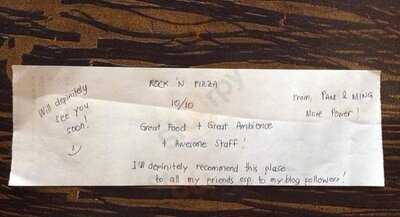 ROCK 'N PIZZA
10/10
Great Food + Great Ambience
+ Awesome Staff!
I'll definitely recommend this place
to all my friends esp. to my blog followers!
Will definitely
see you
soon!
From, PAM & MING
More Power!